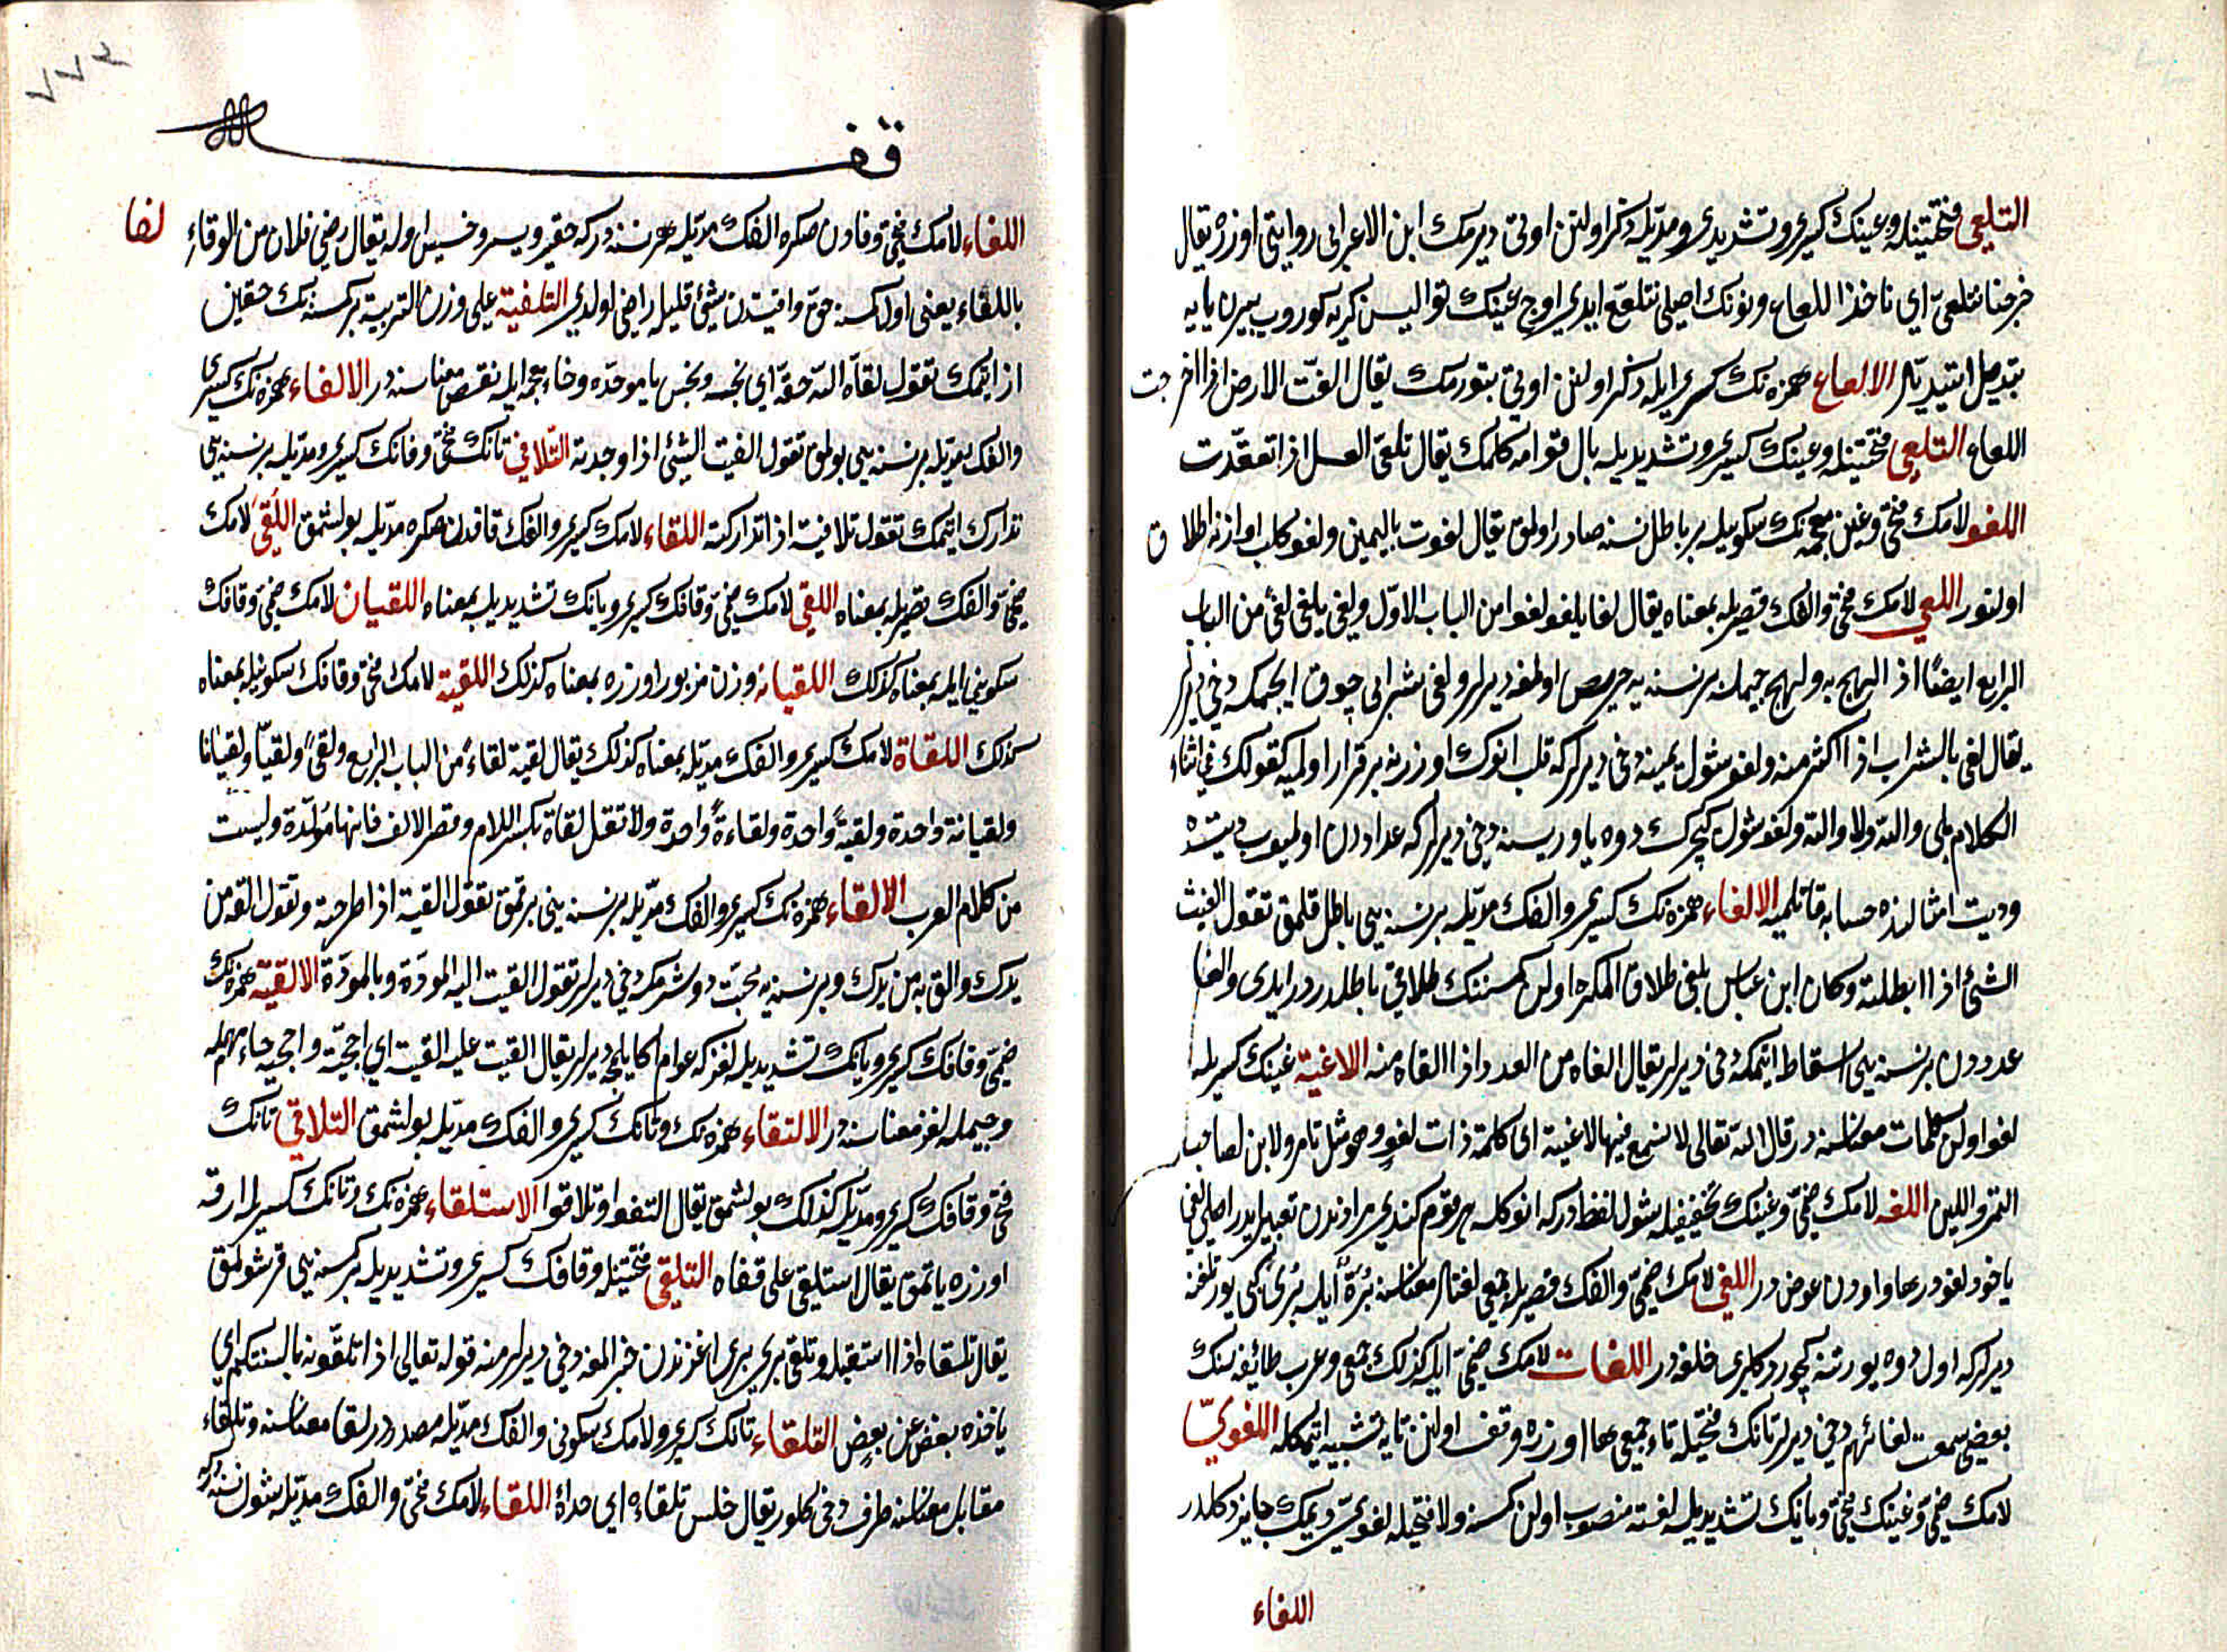 التلعى فتحتينله وعينك كسرى وتشديدى ومديله ذكر اولنن اوتى ديرمك ابن الاعرابى روايتى اوزره يقال
خرجنا نتلعى اى ناخذ اللعاع ونونك اصلى نتلعع ايدى اوج عينك توالیسن كريه كوروب بيرن يايه
تبديل ايتديلر الالعاع همزه نك كسرى ايله ذكر اولنن اوتى بتورمك يقال العت الارض اذا اخرجت
اللعاع التلعى فتحتينله وعينك كسرى وتشديديله بال قوامه كلمك يقال تلعى العسل اذا تعقدت
اللغو لامك فتحى وغين معجمه نك سكونيله بر باطل نسنه صادر اولمق يقال لغوت باليمين ولغو كلب اوازنه اطلاق
اولنور اللغى لامك فتحى والفك قصريله بمعناه يقال لغا يلغو لغوا من الباب الاول ولغى يلغى لغى من الباب
الرابع ايضا اذا لهج به ولهج جيمله بر نسنه يه حريص اولمغه ديرلر ولغى شرابى چوق ايچمكه دخى ديرلر
يقال لغى بالشراب اذا اكثر منه ولغو شول يمينه دخى ديرلر كه قلب انوك اوزرنه برقرار اولميه كقولك فى اثناء
الكلام بلى والله ولا والله ولغو شول كچرك دوه ياوريسنه دخى ديرلر كه عداددن اولميوب ديتده
وديت امثالنده حسابه قاتلميه الالغاء همزه نك كسرى والفك مديله بر نسنه يى باطل قلمق تقول الغيت
الشئ اذا ابطلته وكان ابن عباس يلغى طلاق المكره اولن كمسنه نك طلاقى باطلدر در ايدى والغا
عدددن بر نسنه يى اسقاط ايتمكه دخى ديرلر يقال الغاه من العدد اذا القاه منه اللاغية غينك كسريله
لغو اولن كلمات معناسنه در قال الله تعالى لا تسمع فيها لاغية اى كلمة ذات لغو وهو مثل تامر ولابن لصاحب
التمر واللبن اللغه لامك ضمى وغينك تخفيفيله شول لفظدر كه انوكله هر قوم كندى مرادندن تعبير ايدر اصلى لغى
ياخود لغو در ها واودن عوضدر اللغى لامك ضمى والفك قصريله جمعى لغتلر معناسنه برة ايله برى كبى يورتلغنه
ديرلر كه اول دوه يورتنه كچوردكلرى خلقه در اللغات لامك ضمى ايله كذلك جمعى وعرب طائفه سنك
بعضى سمعت لغاتهم دخى ديرلر تانك فتحيله تاء جمعى ها اوزره وقف اولنن تايه تشبيه ايتمكله اللغوى
لامك ضمى وغينك فتحى ويانك تشديديله لغته منصوب اولن كمسنه ولا فتحيله لغوى ديمك جايز دكلدر
اللفاء
٧٧٤
وقف
لفا
اللفاء لامك فتحى وفادن صكره الفك مديله هر نسنه در كه حقير ويسر وخسيس اوله يقال رضى فلان من الوفاء
باللفاء يعنى اول كمسنه حق وافيتدن شئ قليله راضى اولدى التلفية على وزن التربية بر كمسنه نك حقين
از ايتمك تقول لفاه الله حقه اى بخسه وبخس با موحده وخاء معجمه ايله نقص معناسنه در الالفاء همزه نك كسرى
والفك مديله بر نسنه يى بولمق تقول الفيت الشئ اذا وجدته التلافى تانك فتحى وفانك كسرى ومديله بر نسنه يى
تدارك ايتمك تقول تلافيته اذا تداركته اللقاء لامك كسرى والفك قافدن صكره مديله بولشمق اللقى لامك
ضمى والفك قصريله بمعناه اللقى لامك ضمى وقافك كسرى ويانك تشديديله بمعناه اللقيان لامك ضمى وقافك
سكونى ايله بمعناه كذلك اللقيانه وزن مزبور اوزره بمعناه كذلك اللقية لامك فتحى وقافك سكونيله بمعناه
كذلك اللقاة لامك كسرى والفك مديله بمعناه كذلك يقال لقيته لقاء من الباب الرابع ولقى ولقيا ولقيانا
ولقيانة واحدة ولقية واحدة ولقاءة واحدة ولا تقل لقاة بكسر اللام وقصر الالف فانها مولدة وليست
من كلام العرب الالقاء همزه نك كسرى والفك مديله بر نسنه يى برقمق تقول القيته اذا طرحته وتقول القه من
يدك والق به من يدك وبر نسنه يه محبت دوشرمكه دخى ديرلر تقول القيت اليه المودة وبالمودة الالقية همزه نك
ضمى وقافك كسرى ويانك تشديديله لغز كه عوام اكا يلمجه ديرلر يقال القيت عليه القية اى احجية واحجيه حاء مهمله
وجيمله لغز معناسنه در الالتقاء همزه نك وتانك كسرى والفك مديله بولشمق التلاقى تانك
فتحى وقافك كسرى ومديله كذلك بولشمق يقال التقوا وتلاقوا الاستلقاء همزه نك وتانك كسريله ارقه
اوزره ياتمق يقال استلقى على قفاه التلقى فتحتينله وقافك كسرى وتشديديله بر كمسنه يى قرشولمق
يقال تلقاه اذا استقبله وتلقى برى برى اغزندن خبر المغه دخى ديرلر منه قوله تعالى اذ تلقونه بالسنتكم اى
ياخذه بعض عن بعض التلقاء تانك كسرى ولامك سكونى والفك مديله مصدردر لقا معناسنه وتلقاء
مقابل معناسنه طرف دخى كلور يقال جلس تلقاءه اى حذاه اللقاء لامك فتحى والفك مديله شول نسنه در كه